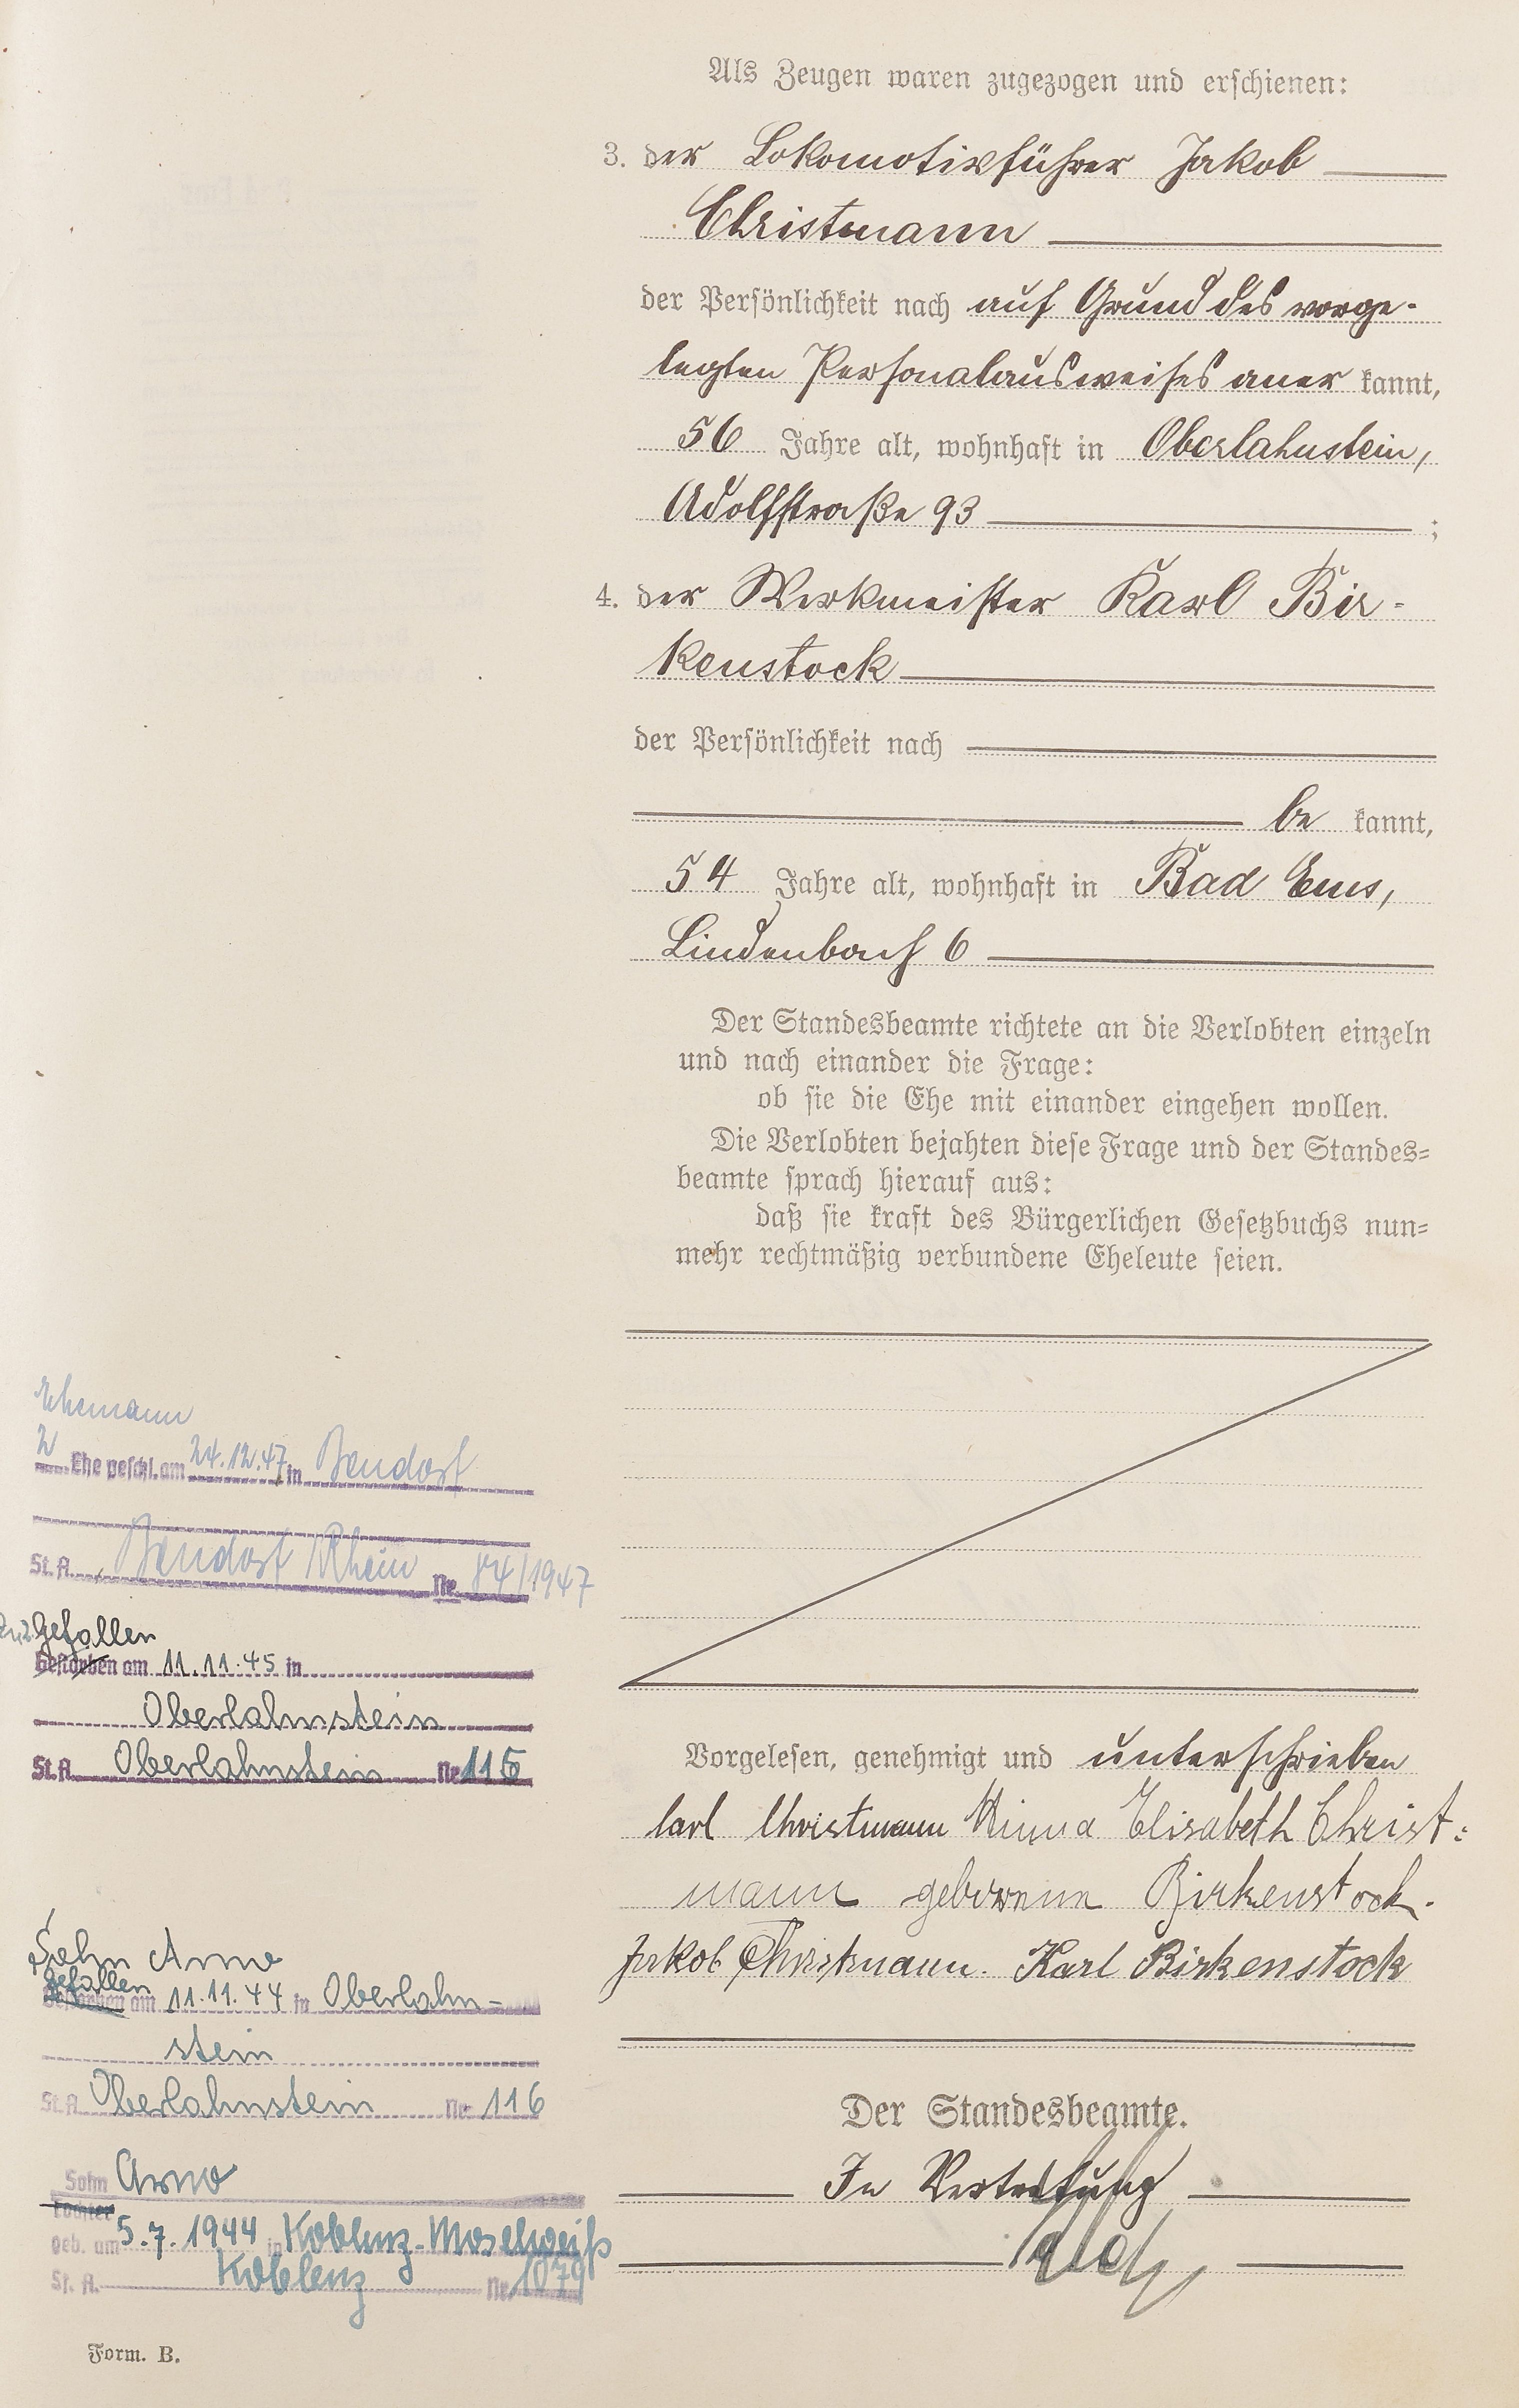 Als Zeugen waren zugezogen und erschienen:
3. der Lokomotivführer Jakob
Christmann
der Persönlichkeit nach auf Grund des vorge-
legten Personalausweises aner kannt,
56 Jahre alt, wohnhaft in Oberlahnstein,
Adolfstraße 93 ;
4. der Werkmeister Karl Bir-
kenstock
der Persönlichkeit nach
be kannt,
54 Jahre alt, wohnhaft in Bad Ems,
Lindenbach 6
Der Standesbeamte richtete an die Verlobten einzeln
und nach einander die Frage:
ob sie die Ehe mit einander eingehen wollen.
Die Verlobten bejahten diese Frage und der Standes=
beamte sprach hierauf aus:
daß sie kraft des Bürgerlichen Gesetzbuchs nun=
mehr rechtmäßig verbundene Eheleute seien.
Vorgelesen, genehmigt und unterschrieben
Carl Christmann Minna Elisabeth Christ:
mann geborene Birkenstock.
Jakob Christmann. Karl Birkenstock
Der Standesbeamte.
In Vertretung
Ehemann
2 Ehe geschl. am 24.12.47 in Bendorf
St. A. Bendorf Rhein Nr. 84/1947
Gefallen
Gestorben am 11.11.45 in
Oberlahnstein
St. A. Oberlahnstein Nr 116
Sohn Arno
gefallen
Gestorben am 11.11.44 in Oberlahn-
stein
St. A. Oberlahnstein Nr. 116
Sohn Arno
Tochter
geb. am 5.7.1944 in Koblenz-Moselweiß
St. A. Koblenz Nr. 1079
Form. B.